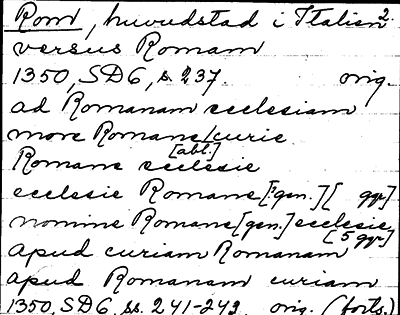 Rom, huvudstad i Italien 2.
versus Romam
1350, SD6, s. 237. orig.
ad Romanam ecclesiam
more Romane curie
[abl.]
Romane ecclesie
ecclesie Romane [gen.] [ ggr]
nomine Romane [gen.] ecclesie
[5 ggr]
apud curiam Romanam
apud Romanam curiam
1350, SD6, ss. 241-242. orig. (forts.)